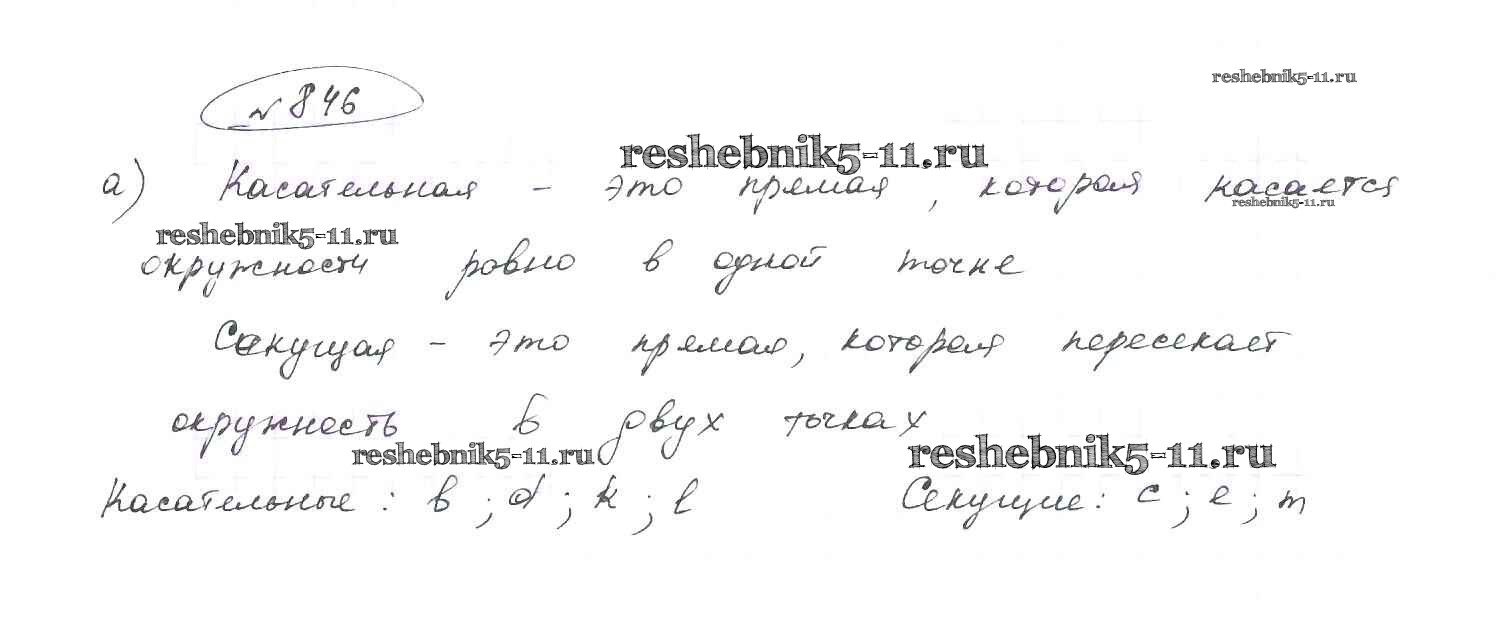 № 846
reshebnik5-11.ru
reshebnik5-11.ru
а) Касательная - это прямая, которая касается
reshebnik5-11.ru
reshebnik5-11.ru
окружности ровно в одной точке
Секущая - это прямая, которая пересекает
окружность в двух точках
reshebnik5-11.ru
reshebnik5-11.ru
Касательные: b; d; k; l Секущие: c; e; m